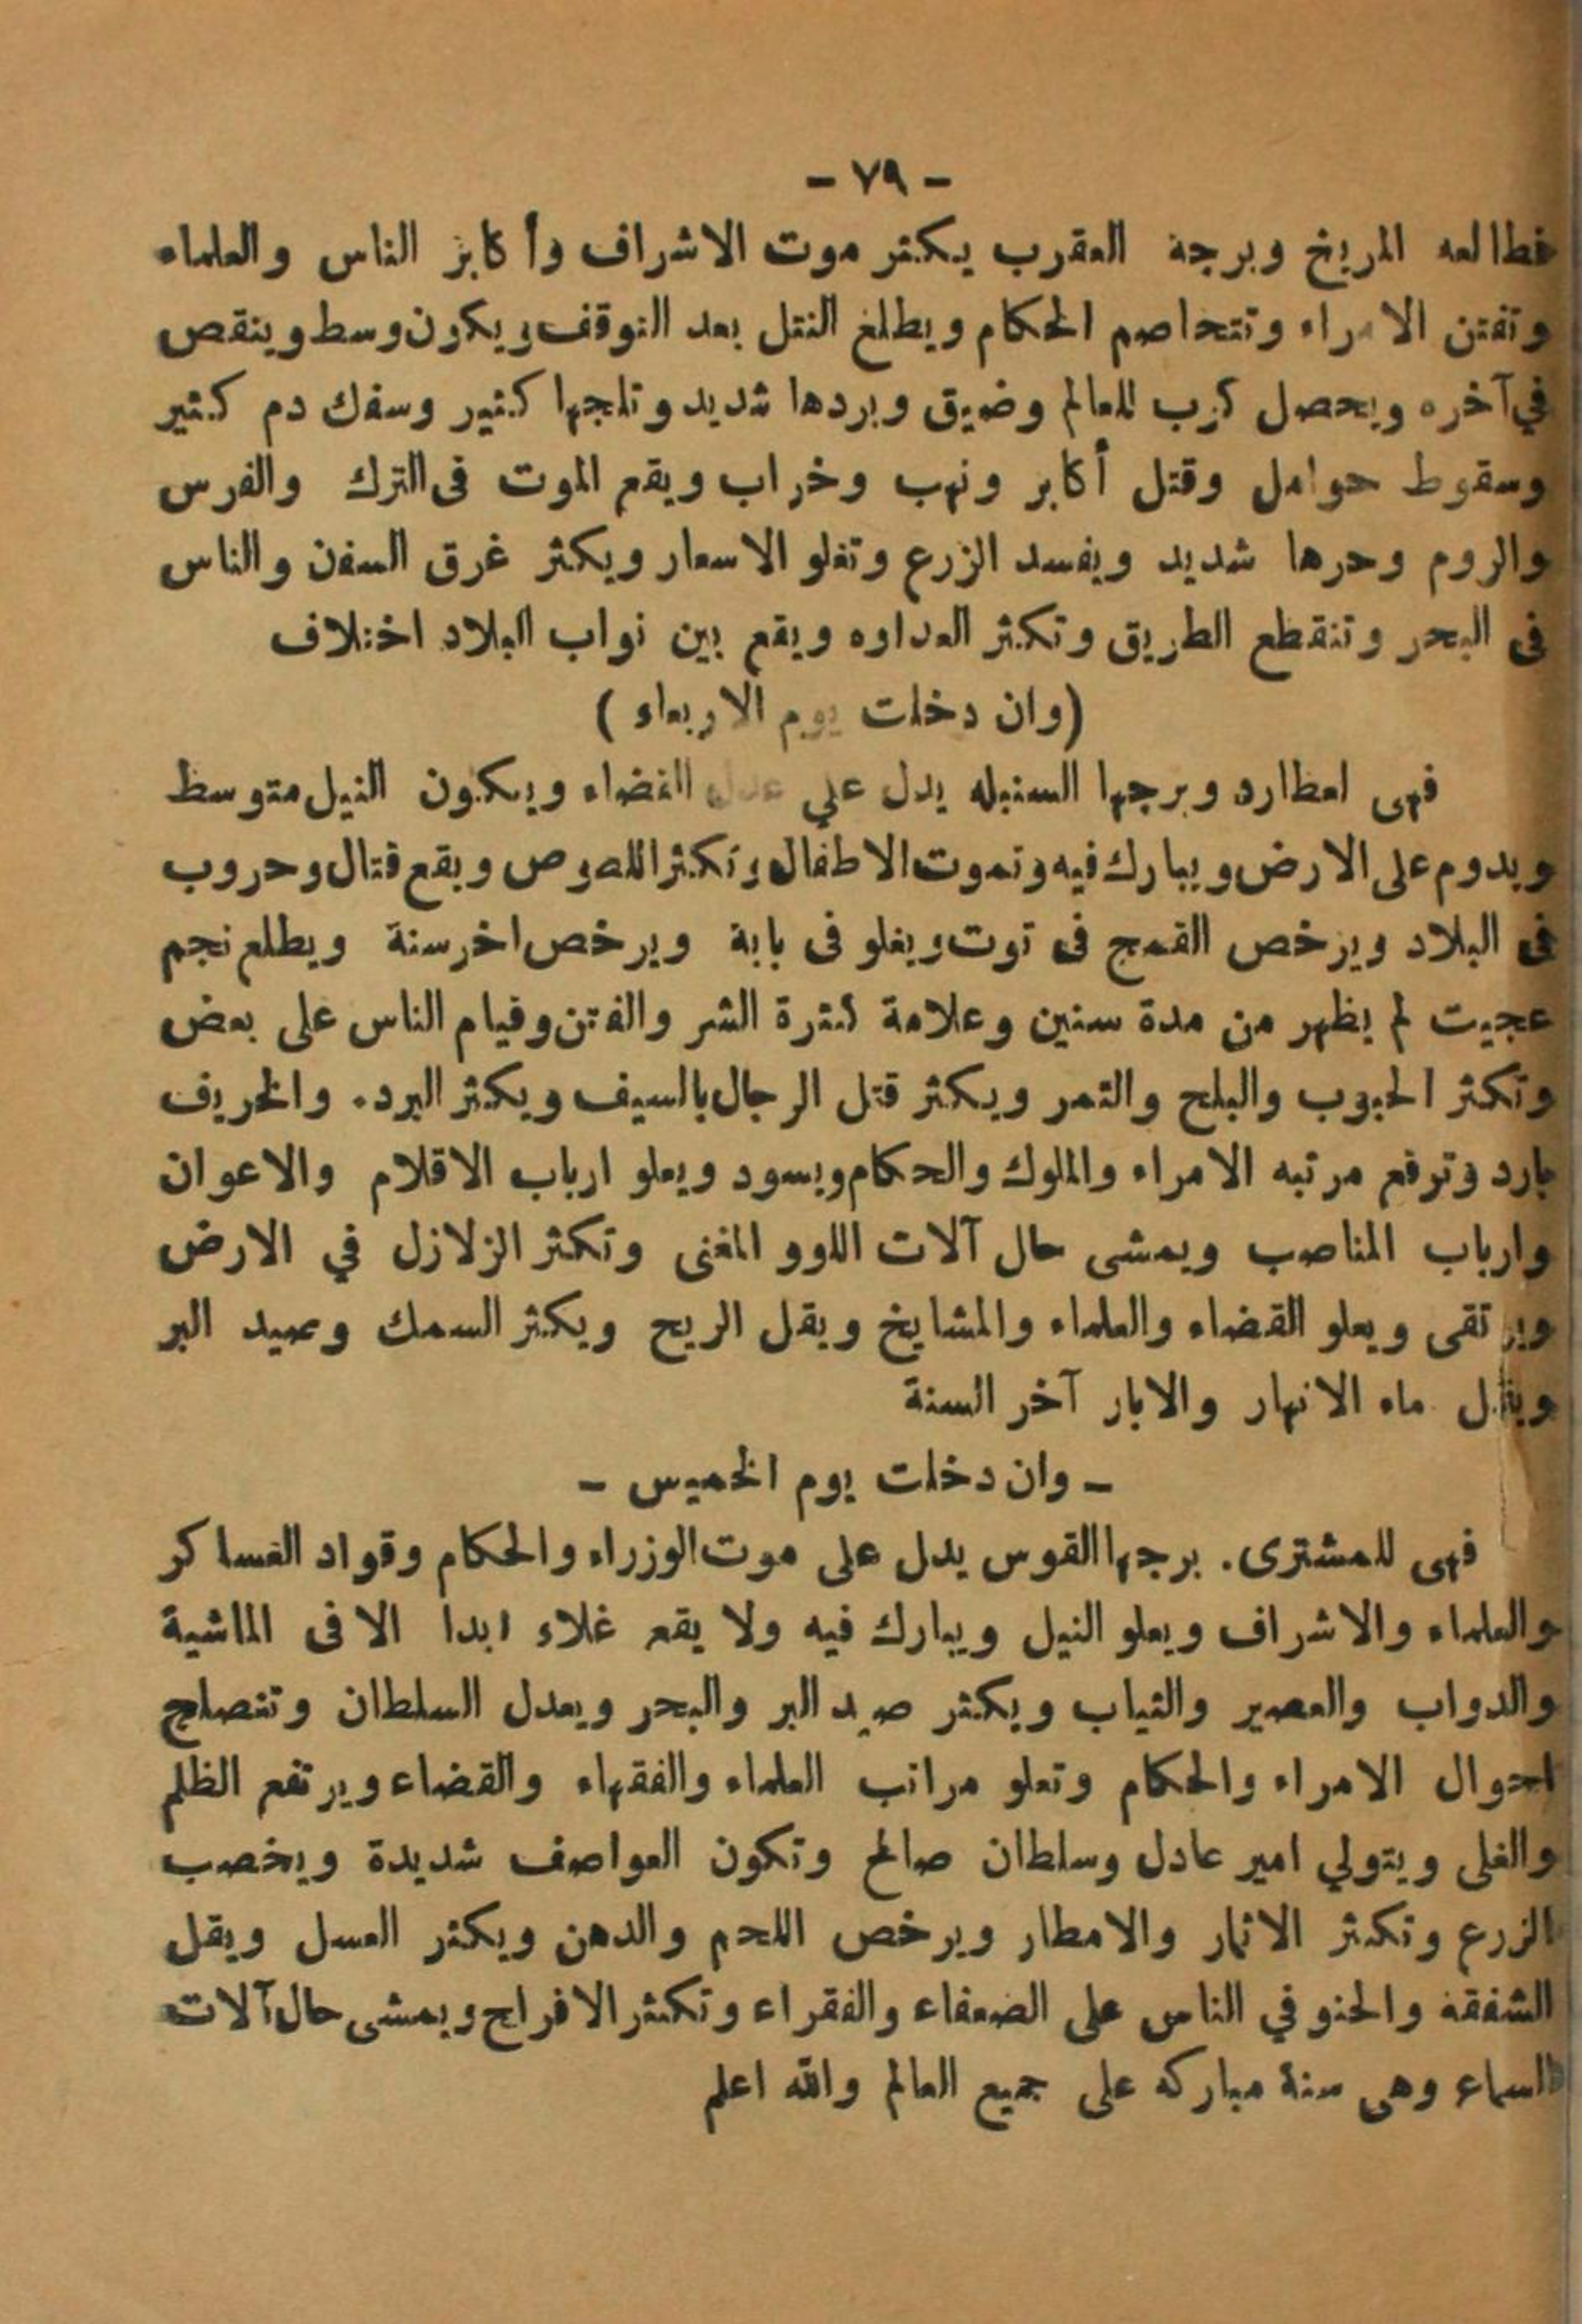 - ٧٩ -
فطالعه المريخ وبرجه العقرب يكثر موت الاشراف وأكابر الناس والعلماء
وتفتن الامراء وتتخاصم الحكام ويطلع النيل بعد التوقف ويكون وسط وينقص
في آخره ويحصل كرب للعالم وضيق وبردها شديد وثلجها كثير وسفك دم كثير
وسقوط حوامل وقتل أكابر ونهب وخراب ويقع الموت فى الترك والفرس
والروم وحرها شديد ويفسد الزرع وتغلو الاسعار ويكثر غرق السفن والناس
فى البحر وتنقطع الطريق وتكثر العداوه ويقع بين نواب البلاد اختلاف
(وان دخلت يوم الاربعاء )
فهى لعطارد وبرجها السنبله يدل علي عدل القضاء ويكون النيل متوسط
ويدوم على الارض ويبارك فيه وتموت الاطفال وتكثر اللصوص ويقع قتال وحروب
فى البلاد ويرخص القمح فى توت ويغلو فى بابة ويرخص اخر سنة ويطلع نجم
عجيب لم يظهر من مدة سنين وعلامة كثرة الشر والفتن وقيام الناس على بعض
وتكثر الحبوب والبلح والتمر ويكثر قتل الرجال بالسيف ويكثر البرد. والخريف
بارد وترفع مرتبه الامراء والملوك والحكام ويسود ويعلو ارباب الاقلام والاعوان
وارباب المناصب ويمشى حال آلات اللوو المغنى وتكثر الزلازل في الارض
ويرتقى ويعلو القضاء والعلماء والمشايخ ويقل الريح ويكثر السمك وصيد البر
ويقل ماء الانهار والابار آخر السنة
- وان دخلت يوم الخميس -
فهى للمشترى. برجها القوس يدل على موت الوزراء والحكام وقواد العساكر
والعلماء والاشراف ويعلو النيل ويبارك فيه ولا يقع غلاء ابدا الا فى الماشية
والدواب والعصير والثياب ويكثر صيد البر والبحر ويعدل السلطان وتنصلح
احوال الامراء والحكام وتعلو مراتب العلماء والفقهاء والقضاء ويرتفع الظلم
والغلى ويتولي امير عادل وسلطان صالح وتكون العواصف شديدة ويخصب
الزرع وتكثر الاثمار والامطار ويرخص اللحم والدهن ويكثر العسل ويقل
الشفقه والحنو في الناس على الضعفاء والفقراء وتكثر الافراح ويمشى حال آلات
السماع وهى سنة مباركه على جميع العالم والله اعلم